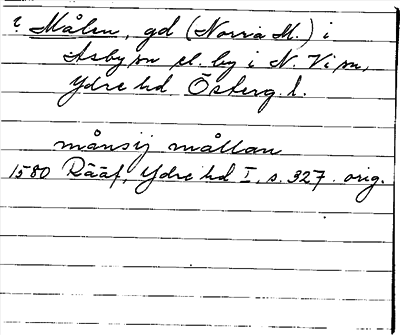 ? Målen, gd (Norra M.) i
Asby sn el. by i N. Vi sn,
Ydre hd Österg. l.
månsij mållan
1580 Rääf, Ydre hd I, s. 327. orig.